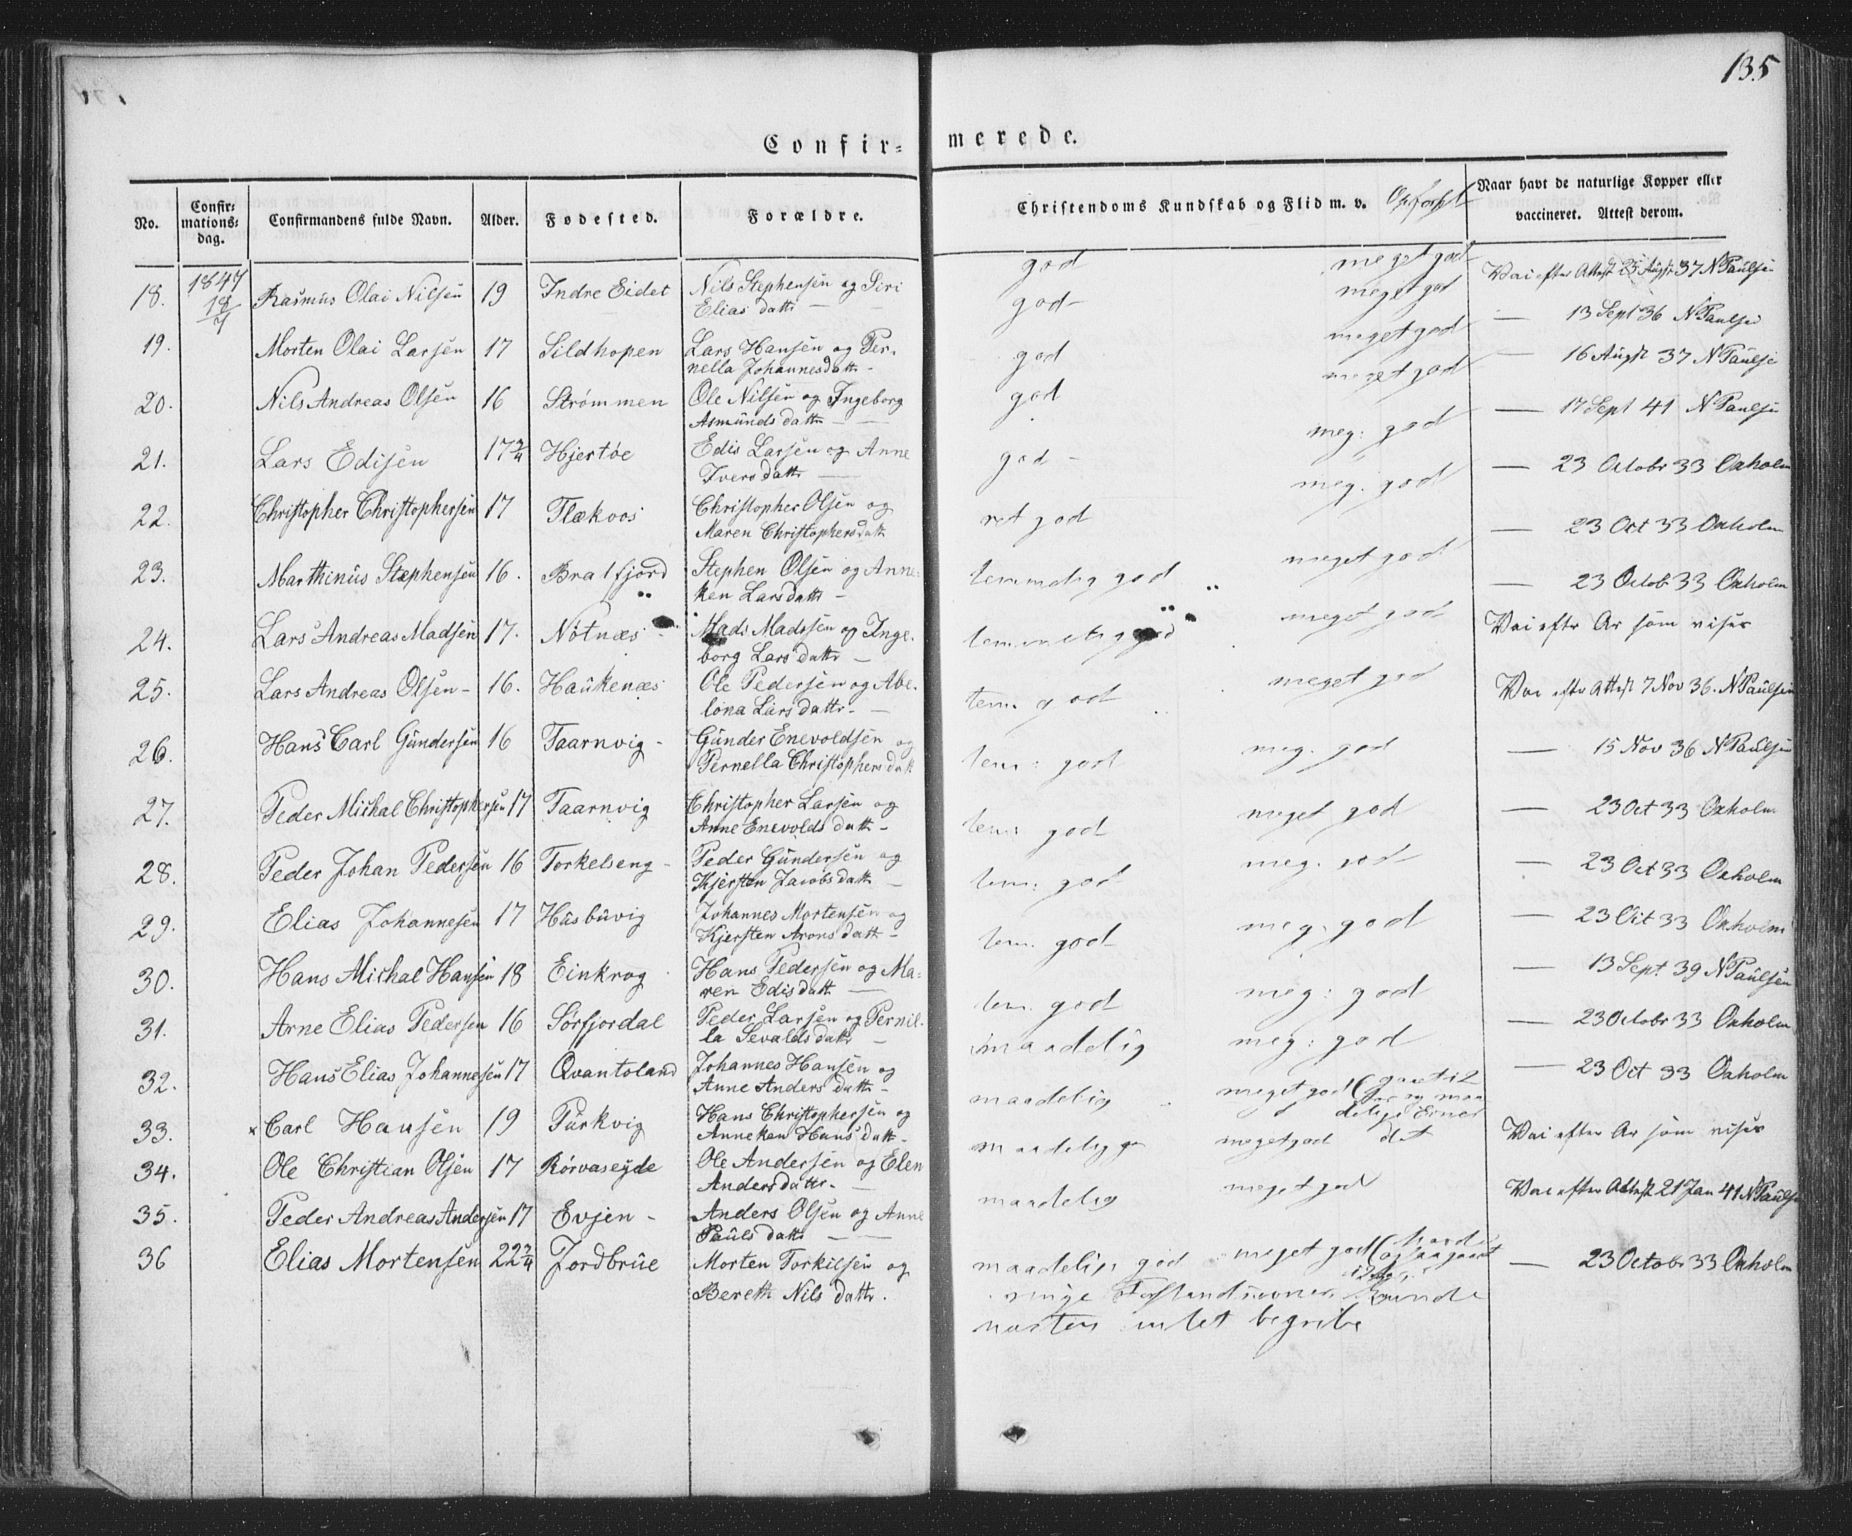 135
Confir= merede.
No. Confir= mations= dag. Confirmandens fulde Navn. Alder. Fodested. Forældre. Christendoms Kundskab og Flid m. v. Opførsel Naar havt de naturlige Kopper eller vaccineret. Attest derom.
18. 1847 18/7 Rasmus Olai Nilsen 19 Indre Eidet Nils Stephensen og Siri Elias datt god meget god Vac efter Attest 25 Augst 37 N Paulsen
19. Morten Olai Larsen 17 Sildhopen Lars Hansen og Per- nella Johannesdatt - god - meget god — 13 Sept 36 N Paulsen
20. Nils Andreas Olsen 16 Strømmen Ole Nilsen og Ingeborg Asmunds datt god meget god — 16 Augst 37 N Paulse
21. Lars Edisen 17 3/4 Hjertøe Edis Larsen og Anne Ivers datt god meget god — 17 Sept 41 N Paulsen
22. Christopher Christophersen 17 Flækvos Christopher Olsen og Maren Christophersdatt god - meg: god — 23 Octobr 33 Oxholm
23. Marthinus Stephensen 16. Bratfjord Stephen Olsen og Anne- ken Lars datt - ret god meg. god — 23 Oct 33 Oxholm
24. Lars Andreas Madsen 17. Nøtnæs - Mads Madssen og Inge- borg Lars datt — temmelig god meget god — 23 Octob 33 Oxholm
25. Lars Andreas Olsen - 16. Haukenæs Ole Pedersen og Abe- lona Lars dattr. — temmelig god meget god Vac efter Ar som vises
26. Hans Carl Gundersen 16 Taarnvig - Gunder Enevoldsen og Pernella Christophers datt tem. god meget god Vac efter Attest 7 Nov 36. N Paulsen
27. Peder Michal Christophersen 17 Taarnvig Christopher Larsen og Anne Enevolds datt - tem: god meg. god — 15 Nov 36 N Paulsen
28. Peder Johan Pedersen 16 Torkelseng - Peder Gundersen og Kjersten Jacobs datt tem: god meget god — 23 Oct 33 Oxholm
29. Elias Johannesen 17 Husbuvig Johannes Mortensen og Kjersten Arons datt - tem: god meg. god — 23 Oct 33 Oxholm
30. Hans Michal Hansen 18 Einkrog Hans Pedersen og Ma- ren Edis datt — tem. god meg. god — 23 Oct 33 Oxholm
31. Arne Elias Pedersen 16 Sørfjordal Peder Larsen og Pernil- la Sevalds datt tem. god meg: god — 13 Sept. 39 N Paulsen
32. Hans Elias Johannesen 17 Qvantoland Johannes Hansen og Anne Anders datt - maadelig meg: god — 23 Octobr 33 Oxholm
33. × Carl Hansen 19 Purkvig Hans Christophersen og Anneken Hans datt - maadelig meget god — 23 Oct 33 Oxholm
34. Ole Christian Olsen 17 Rørvaseyde Ole Andersen og Elen Anders dattr. — maadelig meget god Vac efter Ar som vises
35. Peder Andreas Andersen 17 Evjen - Anders Olsen og Anne Pauls datt — maadelig meget god Vac efter Attest 21 Jan 41 N Paulsen
36 Elias Mortensen 22 3/4 Jordbrue Morten Torkilsen og Bereth Nils dattr. maadelig god meget god — 23 Octobr 33 Oxholm
ringe Forstandsevner, kunde
næsten intet begribe